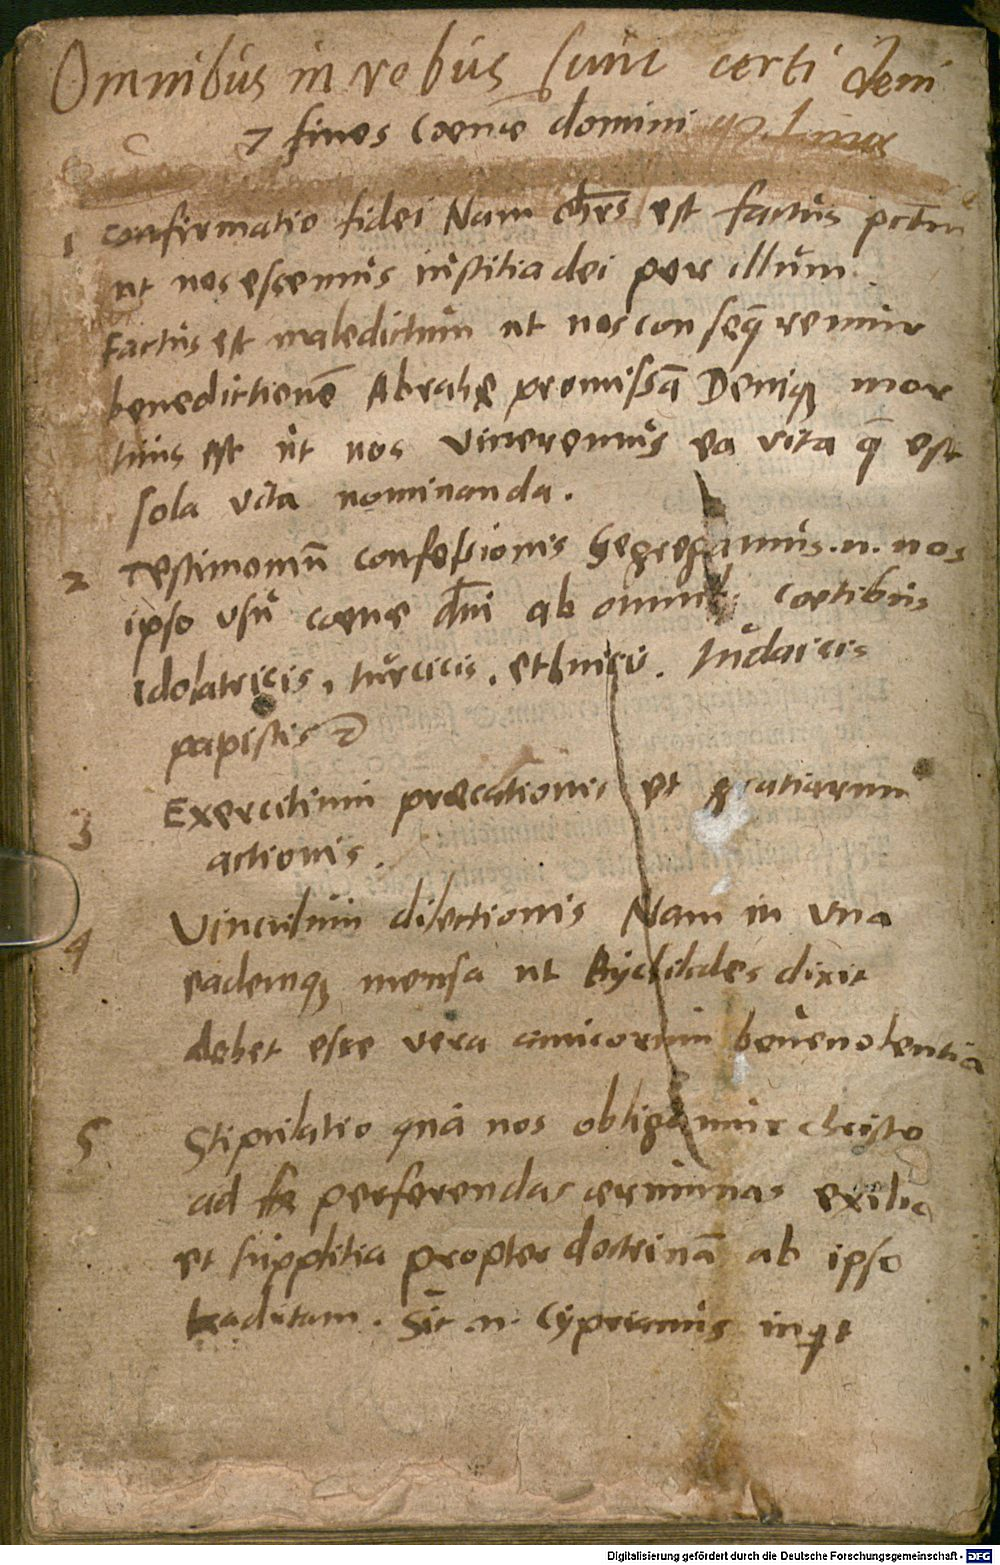 Omnibus in rebus sunt certi
7 fines coenæ domini
1 confirmatio fidei Nam chrs̄ est factus pctm̄
ut nos essemus iustitia dei per illum.
Factus est maledictum ut nos conseq̄remur
benedictionē Abrahę promissā Deniqꝫ mor
tuus est ut nos viueremus ea vita q̄ est
sola vita nominanda.
2 Testimoniū confessionis Segregamus .n. nos
ipso usu coenæ dn̄i ab coetibus
idolatricis, turcicis, ethnicis. Iudaicis
papistis
3 Exercitium præcationis et gratiarum
actionis.
4 Vinculum dilectionis Nam in una
eademqꝫ mensa ut dixit
debet esse vera amicorum beneuolentia
5 Stipulatio qua nos obligamur christo
ad perferendas ærumnas exilia
et supplitia propter doctrinā ab ipso
traditam. Sic .n. Cyprianus inqt
Digitalisierung gefördert durch die Deutsche Forschungsgemeinschaft - DFG